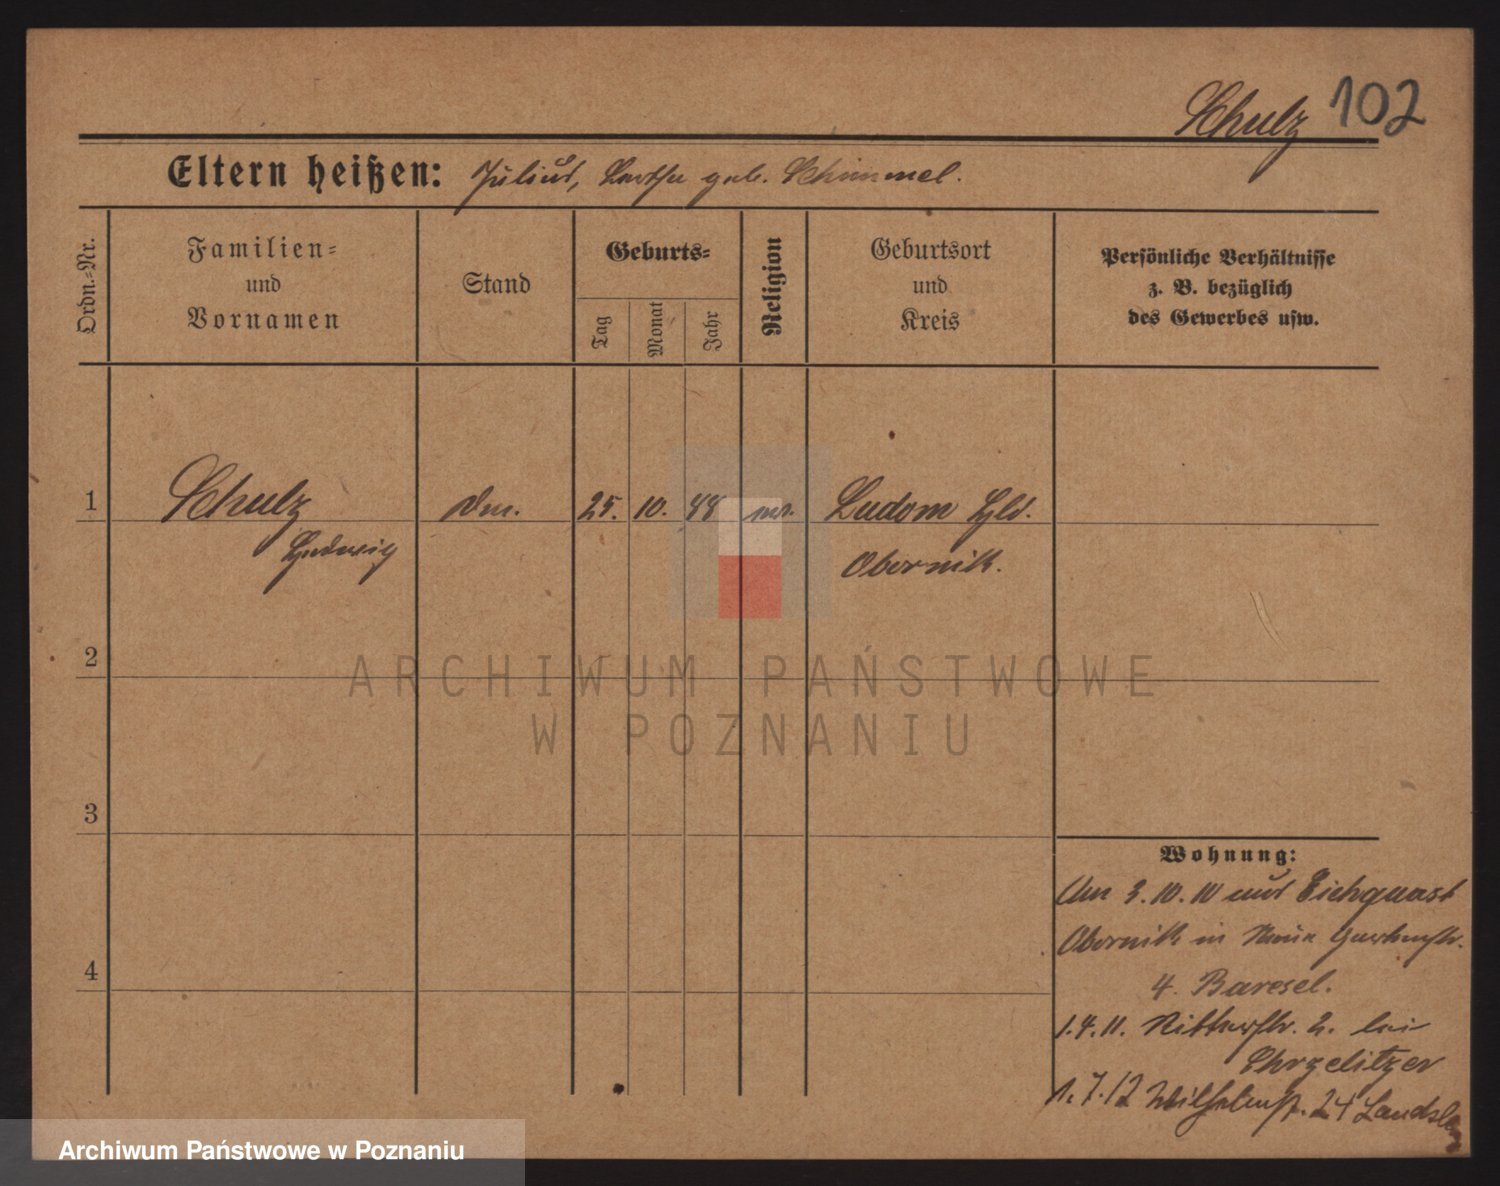 Schulz 102
Eltern heißen: Julius, Bertha geb. Schimmel.
Ordn.=Nr.
Familien=
und
Vornamen
Stand
Geburts=
Tag
Monat
Jahr
Religion
Geburtsort
und
Kreis
Persönliche Verhältnisse
z. B. bezüglich
des Gewerbes usw.
1 Schulz 25. 10. 88 Ludom Hld.
Hedwig Obornik.
2
ARCHIWUM PAŃSTWOWE
W POZNANIU
3
4
Wohnung:
Am 3.10.10 aus Eichquast
Obornik in
4. Baresel.
1.4.11. Ritterstr. 2. bei
Chrzelitzer
1.7.12 Wilhelmst. 24 Landsbg
Archiwum Państwowe w Poznaniu